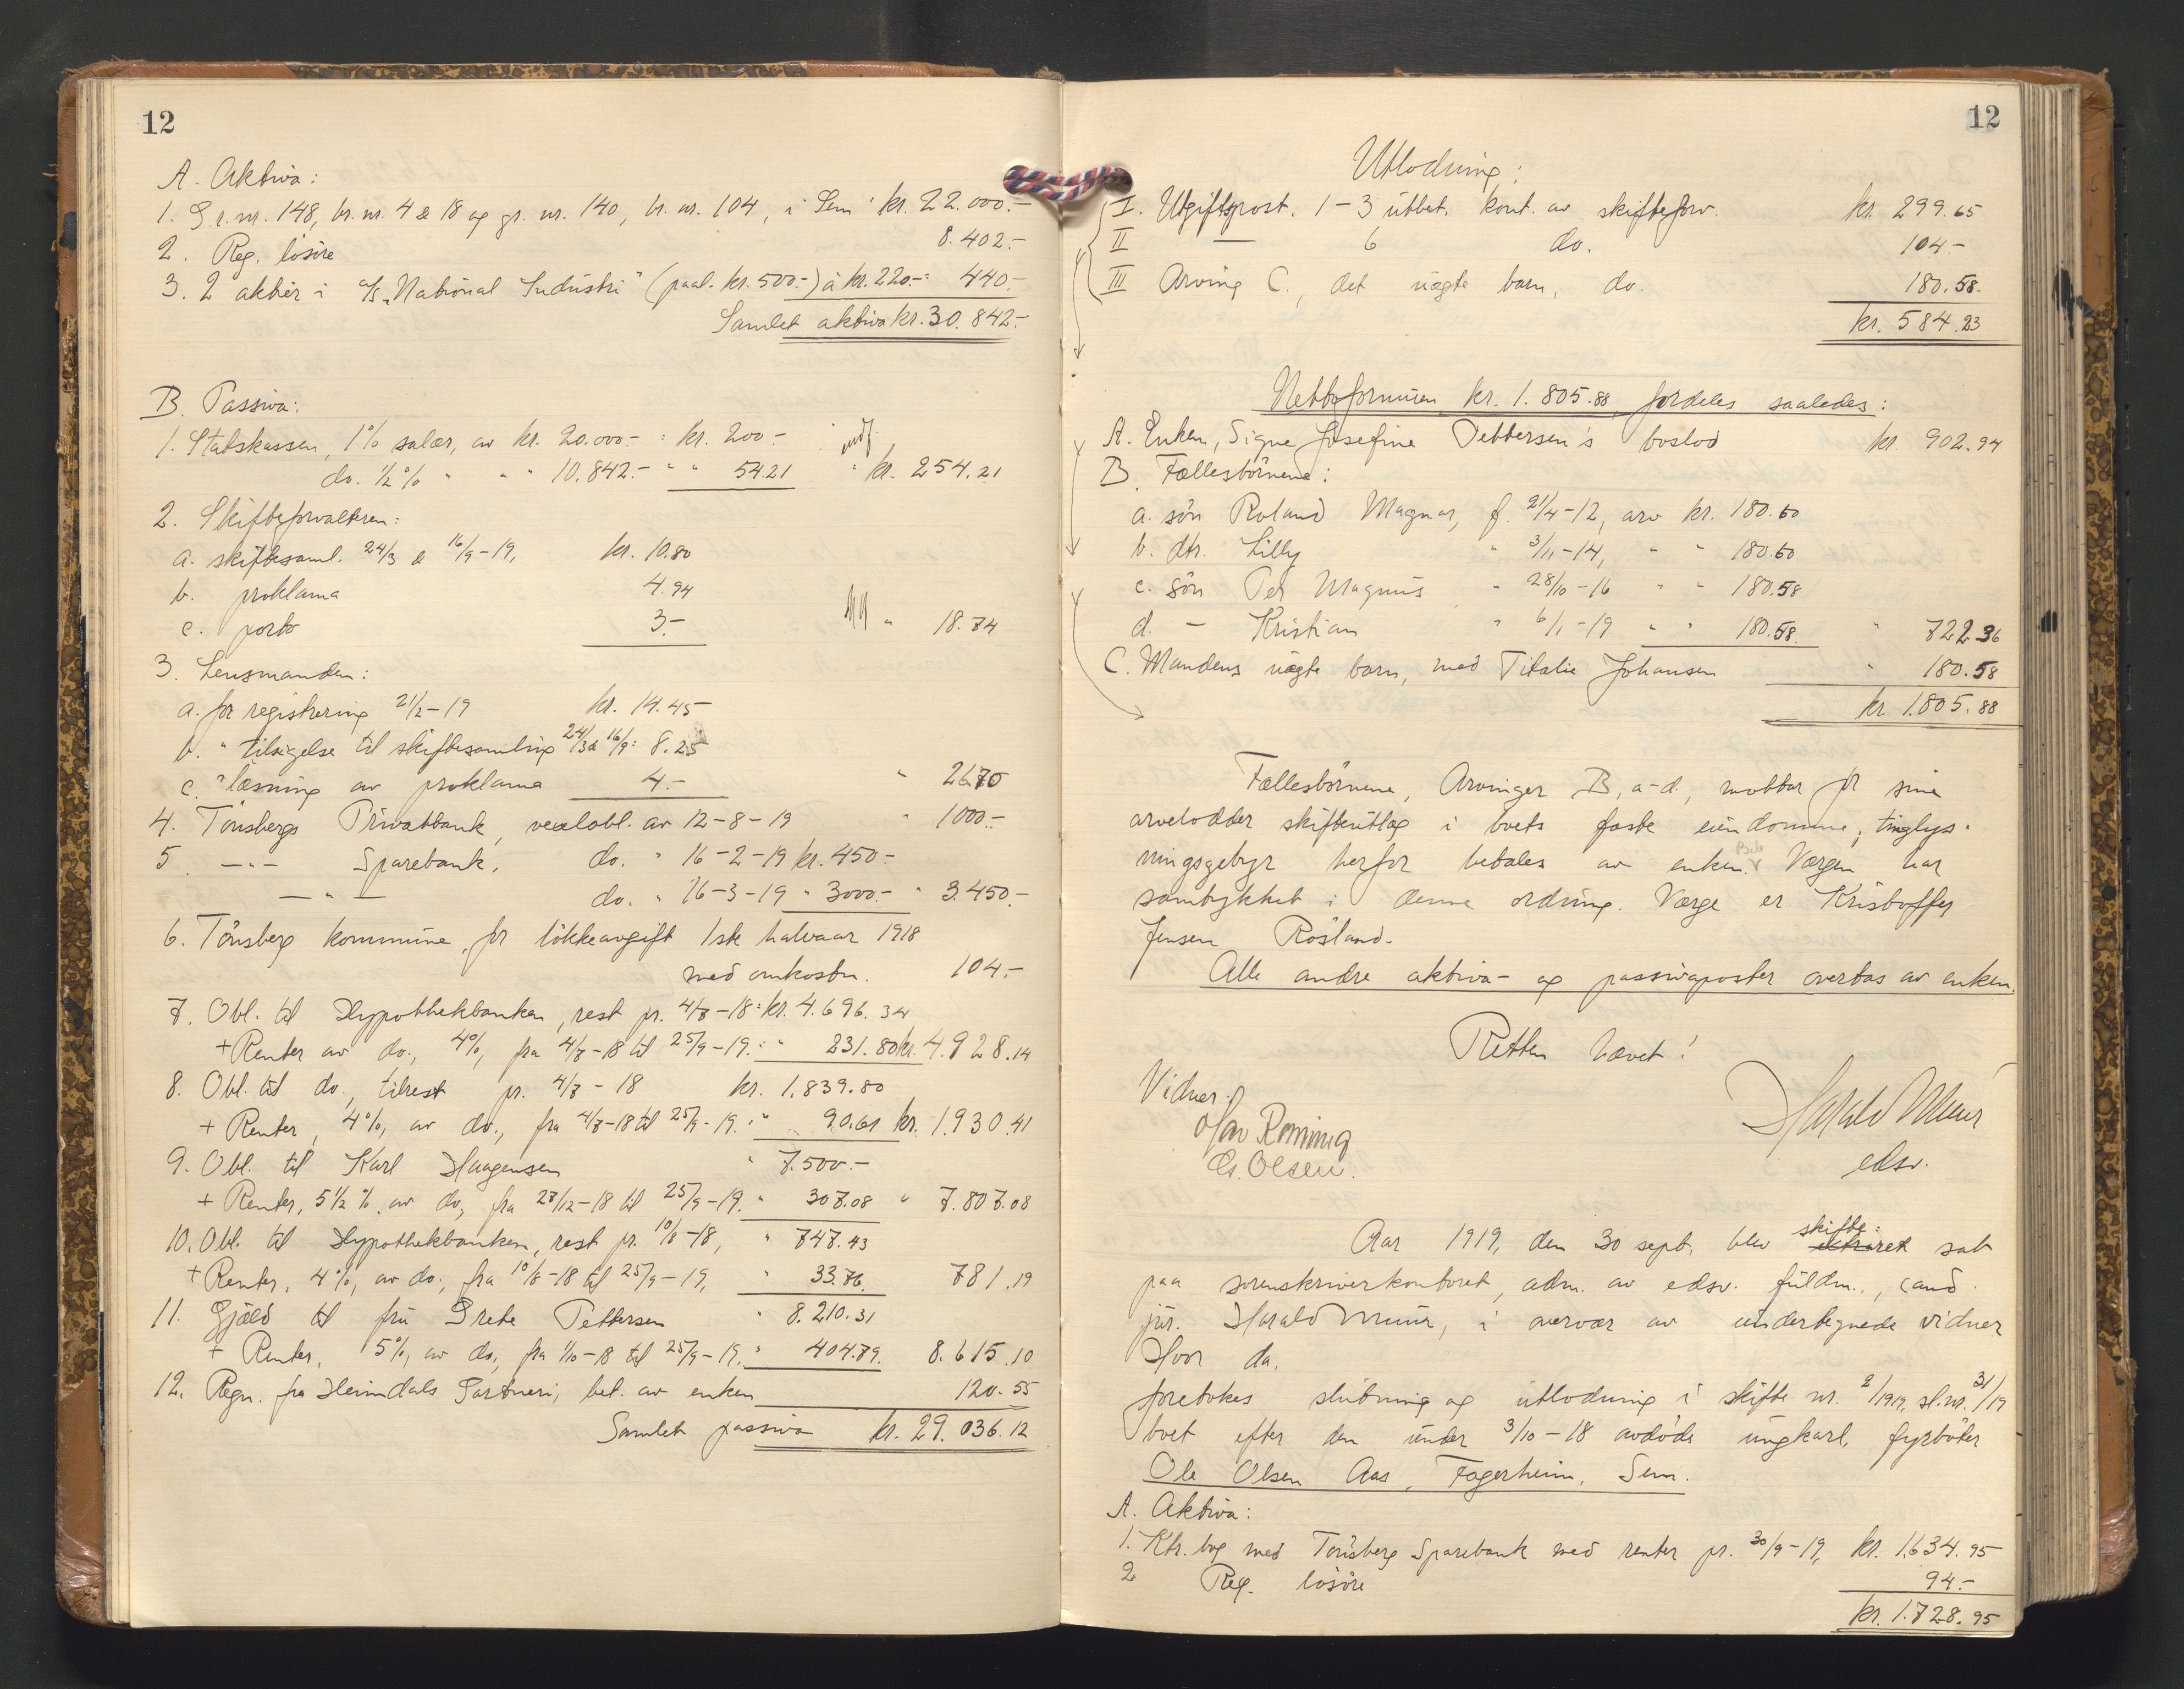 12
A. Aktiva:
1. Gr. nr. 148, br. nr. 4 & 18 og gr. nr. 140, br. nr. 104, i Sem kr. 22.000.-
2. Reg. løsøre 8.402.-
3. 2 aktier i A/S „National Industri" (paal. kr. 500.-) à kr. 220.- = 440.-
Samlet aktiva kr. 30.842.-
B. Passiva:
1. Statskassen, 1% salær, av kr. 20.000.- : kr. 200.-
do. 1/2 % " " " 10.842.- " " 54.21 " kr. 254.21
2. Skifteforvalteren:
a. skiftesaml. 24/3 & 16/9-19, kr. 10.80
b. proklama 4.94
c. porto 3.- " 18.74
3. Lensmanden:
a. for registrering 21/2-19 kr. 14.45
b. " tilsigelse til skiftesamling 24/3 & 16/9: 8.25
c. " læsning av proklama 4.- " 26.70
4. Tønsbergs Privatbank, vexelobl. av 12-8-19 " 1000.-
5. -"- Sparebank, do. " 16-2-19 kr. 450.-
-"- do. " 16-3-19 " 3000.- " 3.450.-
6. Tønsberg kommune, for løkkeavgift 1ste halvaar 1918
med omkostn. 104.-
7. Obl. til Hypothekbanken, rest pr. 4/7-18: kr. 4.696.34
+ Renter av do., 4%, fra 4/7-18 til 25/9-19. : " 231.80 kr. 4.928.14
8. Obl. til do., tilrest pr. 4/7-18 kr. 1.839.80
+ Renter, 4%, av do., fra 4/7-18 til 25/9-19. : " 90.61 kr. 1.930.41
9. Obl. til Karl Haagensen " 7.500.-
+ Renter, 5 1/2 %, av do., fra 27/12-18 til 25/9-19. " 307.08 " 7.807.08
10. Obl. til Hypothekbanken, rest pr. 10/8-18, " 747.43
+ Renter, 4%, av do., fra 10/8-18 til 25/9-19, " 33.76. 781.19
11. Gjæld til fru Grete Pettersen " 8.210.31
+ Renter, 5%, av do., fra 1/10-18 til 25/9-19. " 404.79. 8.615.10
12. Regn. fra Heimdals Gartneri, bet. av enken 120.55
Samlet passiva kr. 29.036.12
12
Utlodning:
I. Utgiftspost. 1-3 utbet. kont. av skifteforv. kr. 299.65
II — 6 do. 104.-
III Arving C., det uægte barn, do. 180.58.
kr. 584.23
Nettoformuen kr. 1.805.88 fordeles saaledes:
A. Enken, Signe Josefine Pettersen's boslod kr. 902.94
B. Fællesbørnene:
a. søn Roland Magnar, f. 21/4-12, arv kr. 180.60
b. dtr. Lilly " 3/11-14, " " 180.60
c. søn Per Magnus " 28/10-16 " " 180.58
d. - Kristian " 6/1-19 " " 180.58. " 722.36
C. Mandens uægte barn, med Titalie Johansen " 180.58
kr. 1.805.88
Fællesbørnene, Arvinger B, a-d., mottar for sine
arvelodder skifteutlæg i boets faste eiendomme; tinglys-
ningsgebyr herfor betales av enken. Værgen har
samtykket i denne ordning. Værge er Kristoffer
Jensen Røsland.
Alle andre aktiva- og passivaposter overtas av enken.
Retten hævet!
Vidner.
Olav Rønning
G. Olsen.
Harald Muur
edsv.
Aar 1919, den 30 sept. blev skifte-
ret sat
paa sorenskriverkontoret, adm. av edsv. fuldm., cand.
jur. Harald Muur, i overvær av undertegnede vidner
Hvor da.
foretokes slutning og utlodning i skifte nr. 2/1919, sl. nr. 31/19
boet efter den under 3/10-18 avdøde ungkarl, fyrbøter
Ole Olsen Aas, Fagerheim, Sem.
A. Aktiva:
1. Ktr. bog med Tønsberg Sparebank med renter pr. 30/9-19, kr. 1.634.95
2 Reg. løsøre 94.-
kr. 1.728.95